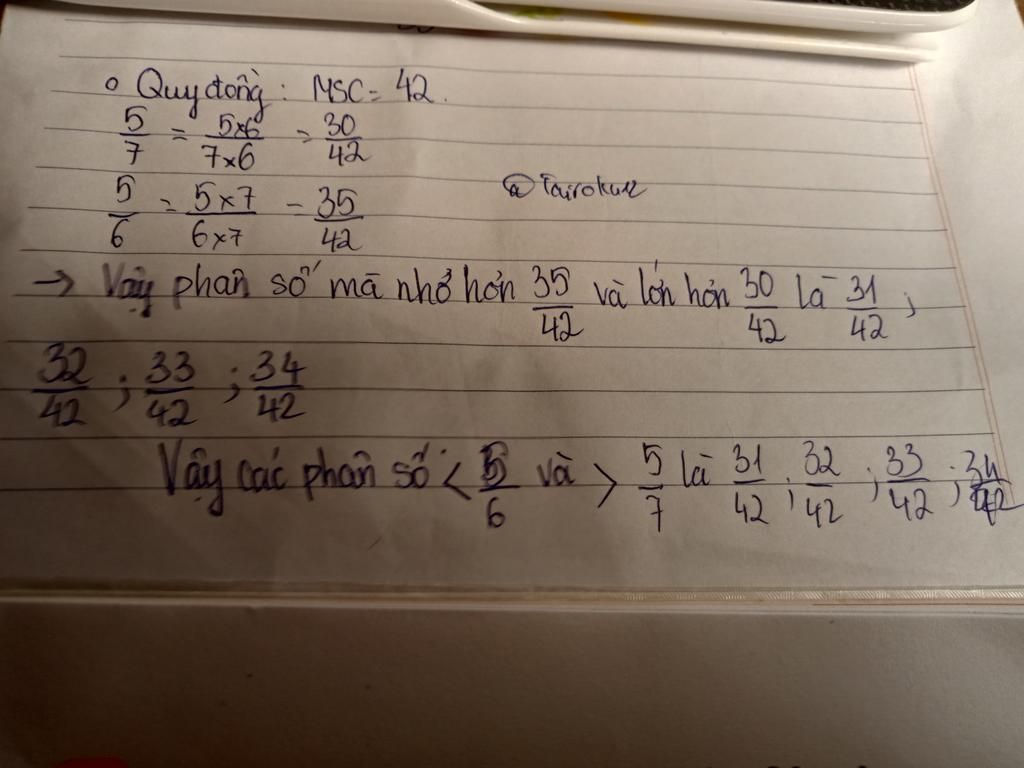 o Quy đồng: MSC = 42.
5/7 = 5×6/7×6 = 30/42
5/6 = 5×7/6×7 = 35/42
@Tairokuz
→ Vậy phân số mà nhỏ hơn 35/42 và lớn hơn 30/42 là 31/42;
32/42 ; 33/42 ; 34/42
Vậy các phân số < 5/6 và > 5/7 là 31/42 ; 32/42 ; 33/42 ; 34/42